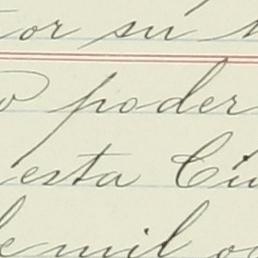 or su
o poder
esta Ciu
de mil oc